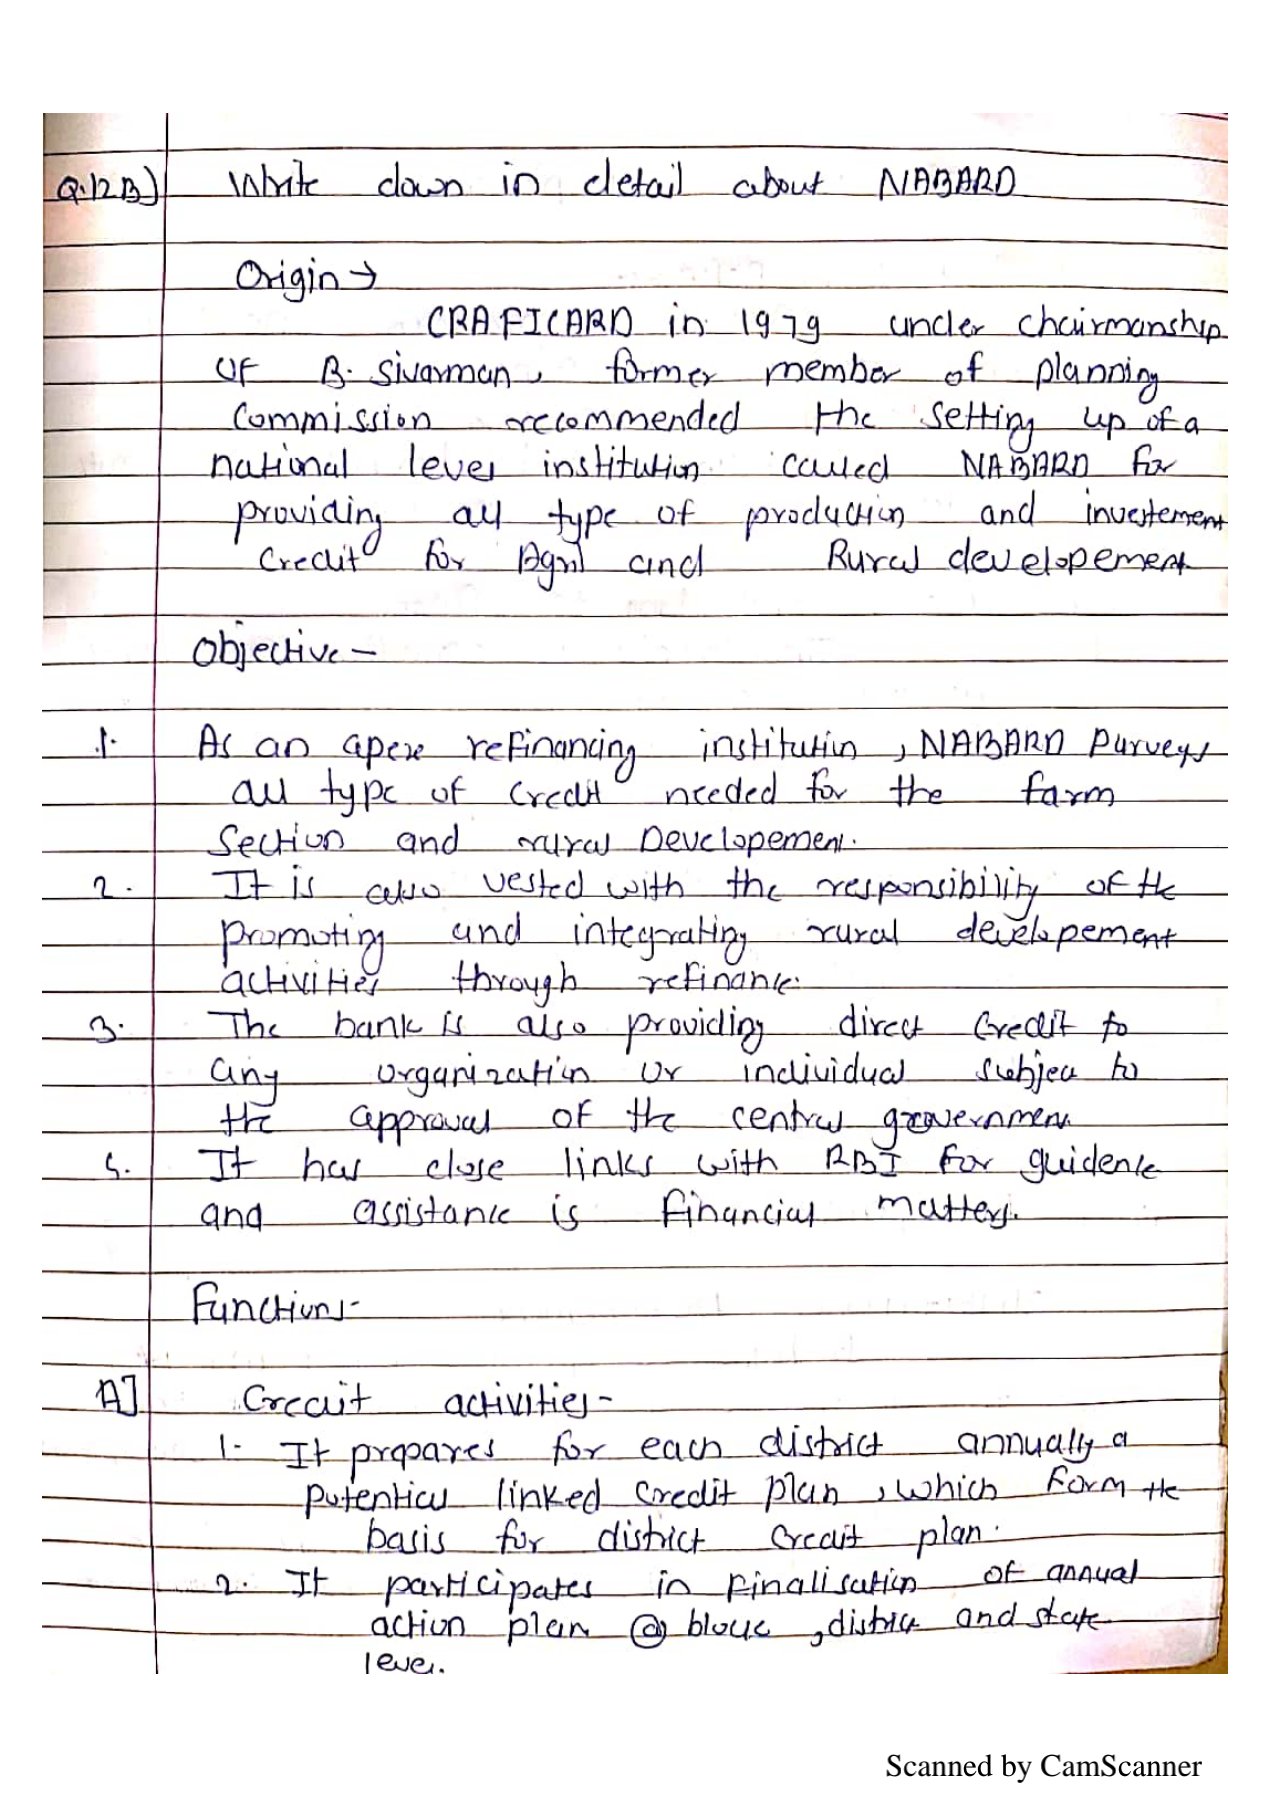 Q.12 B) Write down in detail about NABARD
Origin →
CRAFICARD in 1979 under chairmanship
of B. Sivarman, former member of planning
Commission recommended the setting up of a
national level institution called NABARD for
providing all type of production and investement
Credit for Agril and Rural developement
Objective -
1. As an apex refinancing institution, NABARD Purveys
all type of credit needed for the farm
Section and rural Developement.
2. It is also vested with the responsibility of the
promoting and integrating rural developement
activities through refinance.
3. The bank is also providing direct Credit to
any organization or individual subject to
the approval of the central government.
4. It has close links with RBI for guidence
and assistance is financial matters.
Functions-
A] Credit activities -
1. It prepares for each district annually a
potential linked credit plan, which form the
basis for district credit plan.
2. It participates in finalisation of annual
action plan @ block, district and state
level.
Scanned by CamScanner